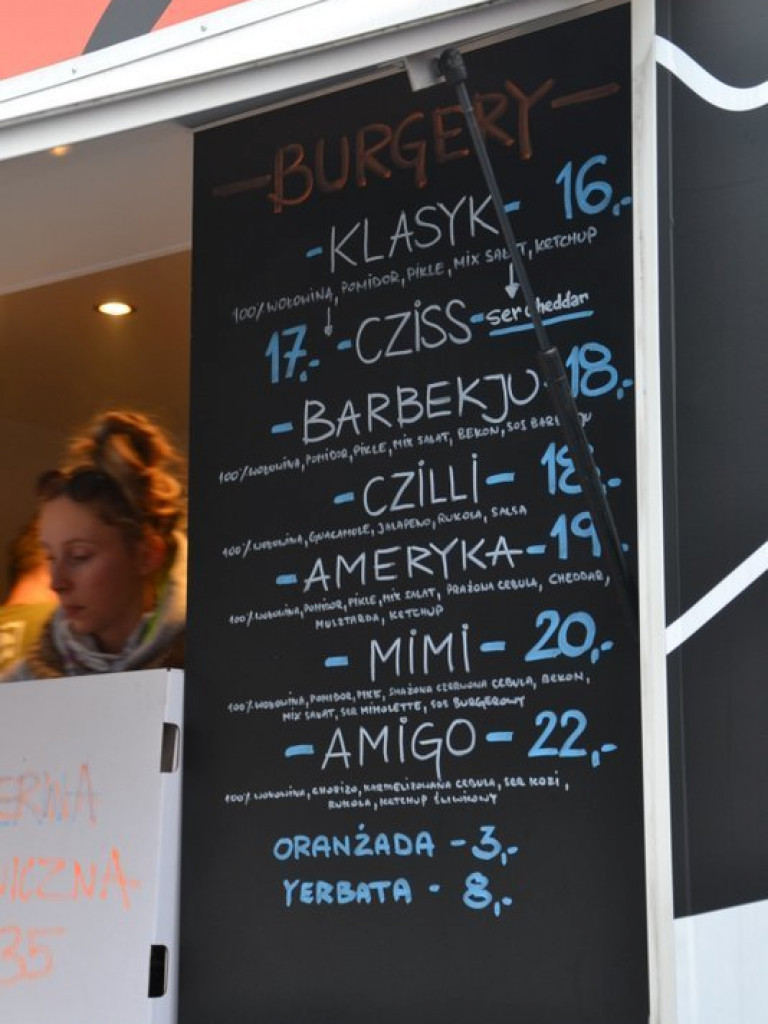 - BURGERY -
- KLASYK - 16,-
100% WOŁOWINA, POMIDOR, PIKLE, MIX SAŁAT, KETCHUP
17,- - CZISS - ser cheddar
- BARBEKJU - 18,-
100% WOŁOWINA, POMIDOR, PIKLE, MIX SAŁAT, BEKON, SOS
- CZILLI - 18,-
100% WOŁOWINA, GUACAMOLE, JALAPENO, RUKOLA, SALSA
- AMERYKA - 19,-
100% WOŁOWINA, POMIDOR, PIKLE, MIX SAŁAT, PRAŻONA CEBULA, CHEDDAR,
MUSZTARDA, KETCHUP
- MIMI - 20,-
100% WOŁOWINA, POMIDOR, PIKLE, SMAŻONA CZERWONA CEBULA, BEKON,
MIX SAŁAT, SER MIMOLETTE, SOS BURGEROWY
- AMIGO - 22,-
100% WOŁOWINA, CHORIZO, KARMELIZOWANA CEBULA, SER KOZI,
RUKOLA, KETCHUP ŚLIWKOWY
ORANŻADA - 3,-
YERBATA - 8,-
ERWA
ICZNA
35